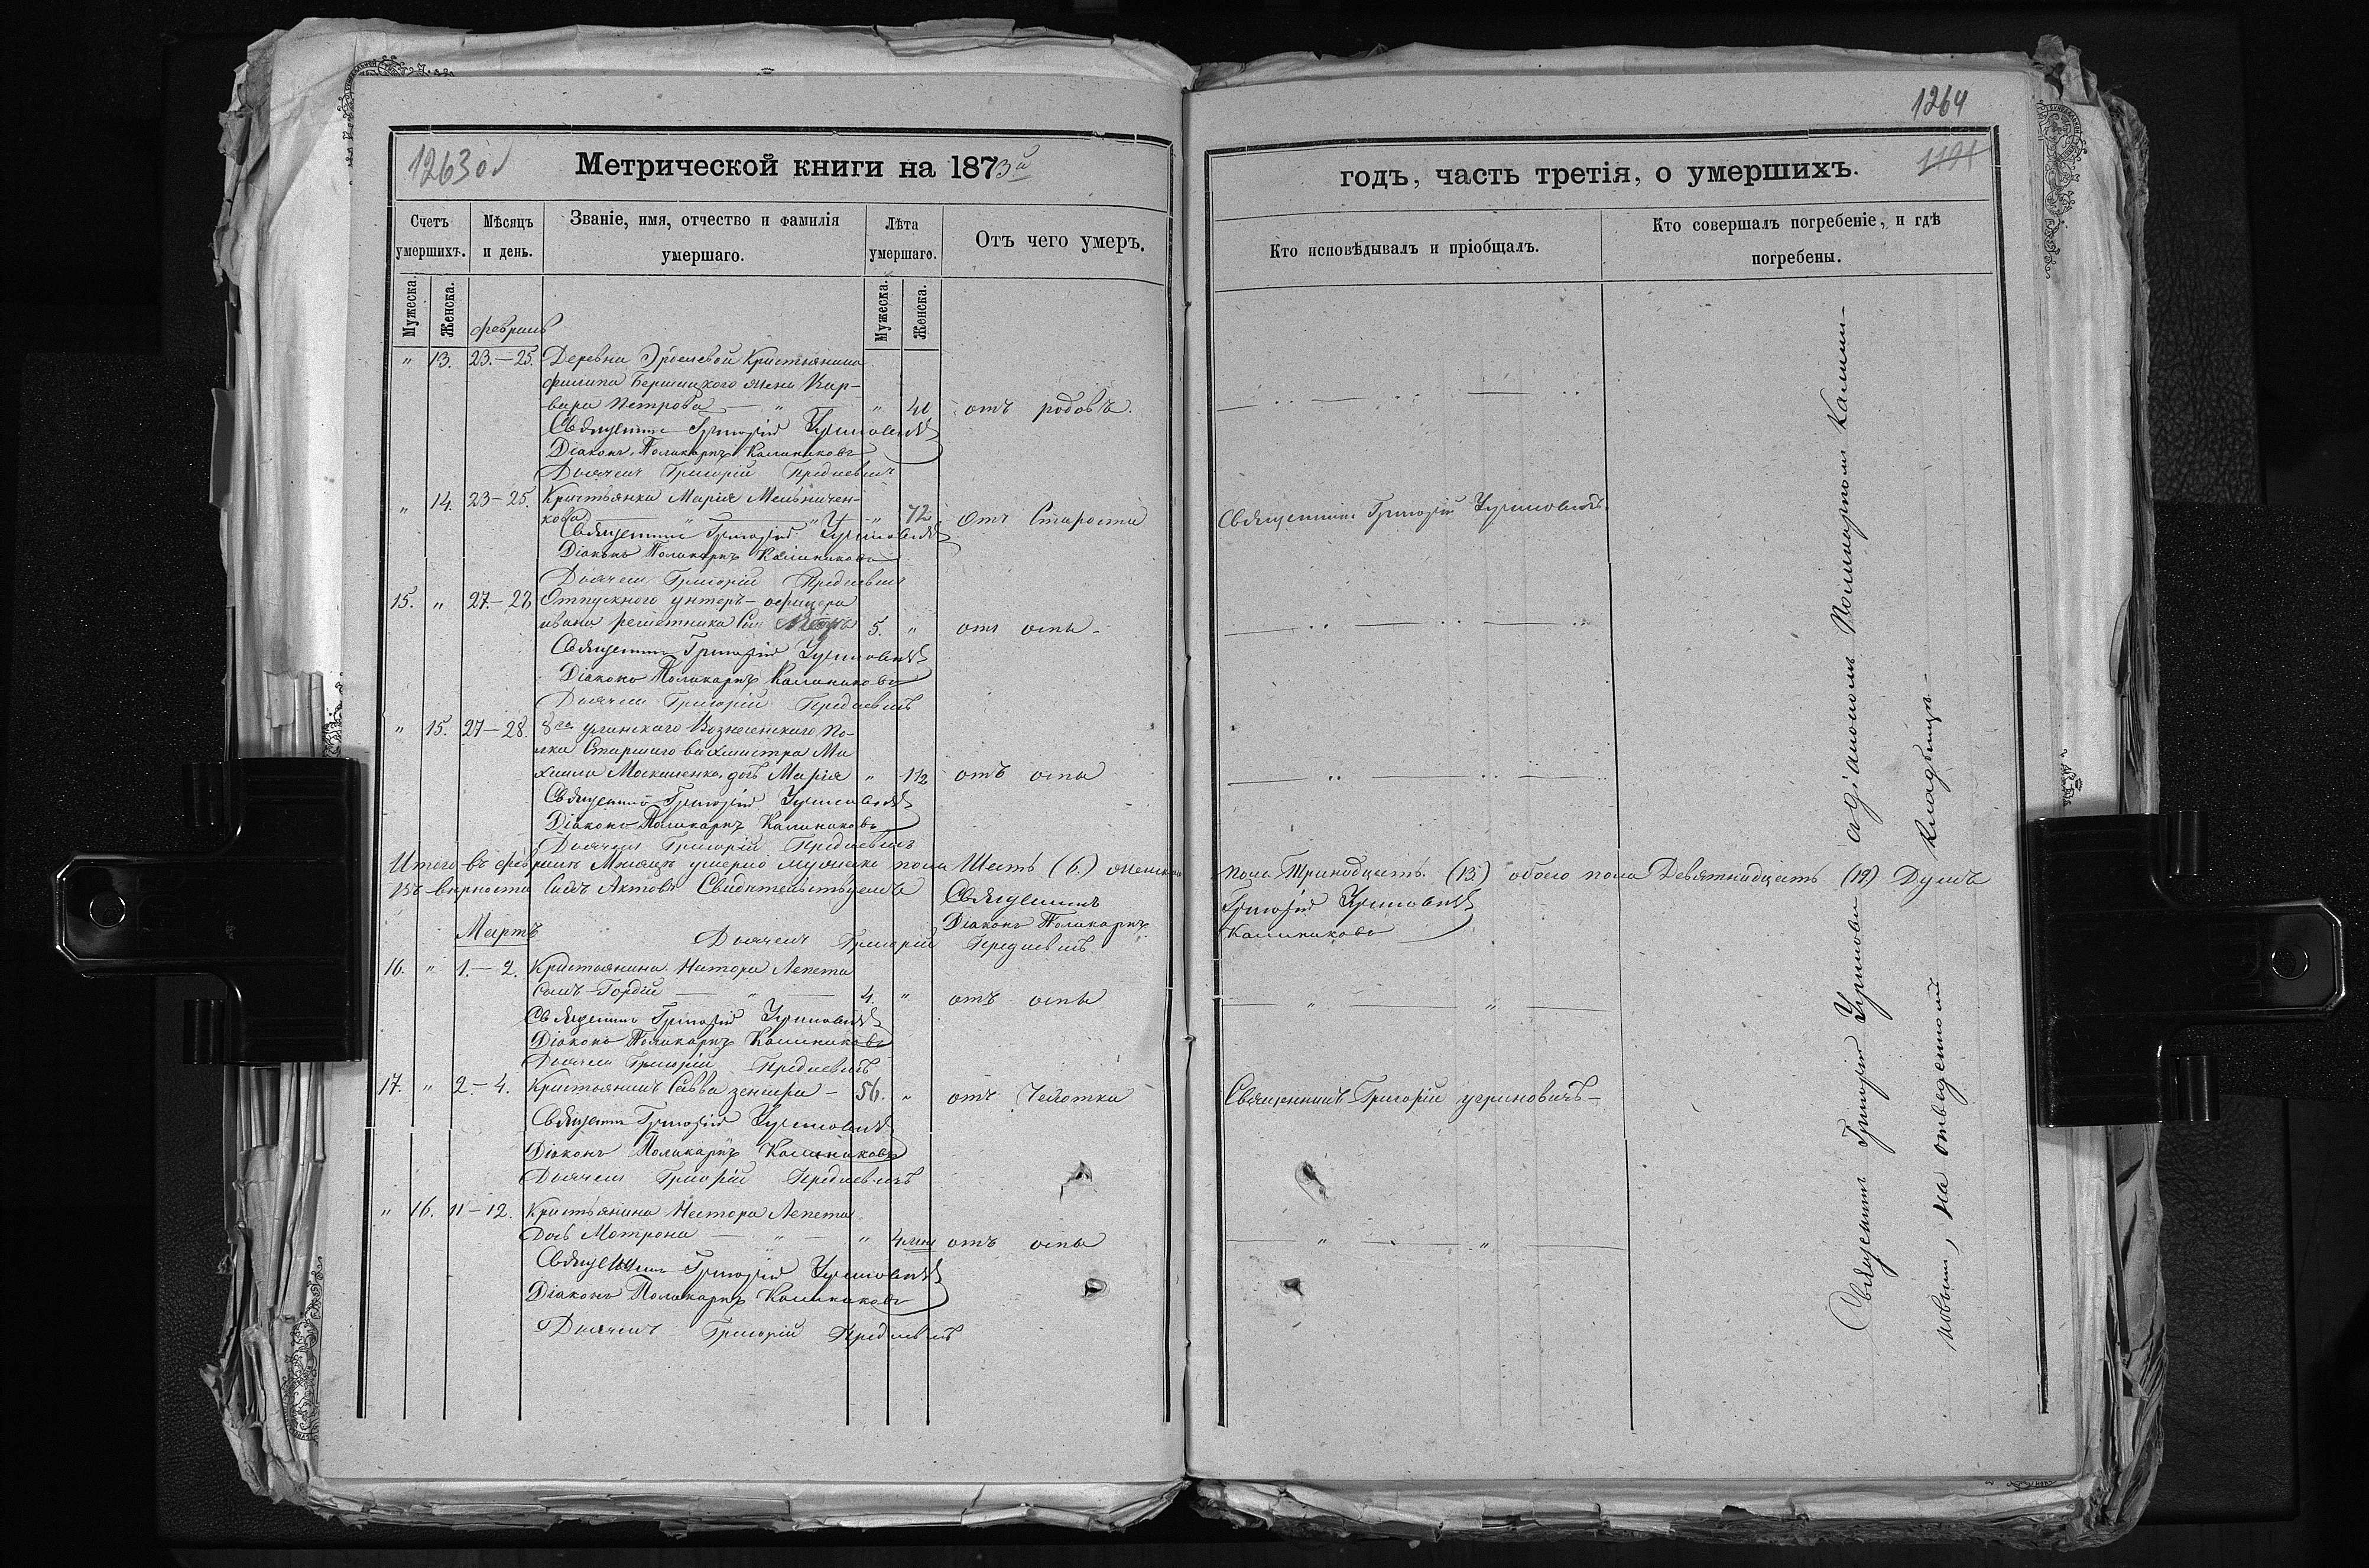 1263 об
Метрической книги на 1873й
Счетъ умершихъ.
Мѣсяцъ и день.
Званіе, имя, отчество и фамилія умершаго.
Лѣта умершаго.
Отъ чего умеръ.
Мужеска. Женска.
Мужеска. Женска.
февраль
" 13. 23.—25. Деревни Крестьянина
филипа жена Вар-
вара Петрова — " — " 40 отъ родовъ.
Священникъ Григорій Угриновичъ
Діаконъ Поликарпъ Калиниковъ
Дьячекъ Григорій
" 14. 23—25. Крестьянка Марія Мельничен-
кова — " — " 72 Отъ Старости
Священникъ Григорій Угриновичъ
Діаконъ Поликарпъ Калиниковъ
Дьячекъ Григорій
15. " 27.—28 Отпускного унтеръ-офицера
ивана решетника Сынъ 5. " отъ оспы-
Священникъ Григорій Угриновичъ
Діаконъ Поликарпъ Калиниковъ
Дьячекъ Григорій
" 15. 27—28. 8го уланскаго Вознесенскаго По-
лка Старшаго вахмистра Ми
хаила дочь Марія " 1½ отъ оспы
Священникъ Григорій Угриновичъ
Діаконъ Поликарпъ Калиниковъ
Дьячекъ Григорій
Итого въ февралѣ Мѣсяцѣ умерло мужеска пола Шесть (6.) женска
Въ вѣрности Сихъ Актовъ Свидѣтельствуемъ
Священникъ
Діаконъ Поликарпъ
Мартъ
Дьячекъ Григорій
16. " 1.—2. Крестьянина Нестора Лепети
Сынъ Гордій — " — 4. " отъ оспы
Священникъ Григорій Угриновичъ
Діаконъ Поликарпъ Калиниковъ
Дьячекъ Григорій
17. " 2.—4. Крестьянинъ Савва — 56. " отъ Чахотки
Священникъ Григорій Угриновичъ
Діаконъ Поликарпъ Калиниковъ
Дьячекъ Григорій
" 16. 11—12. Крестьянина Нестора Лепети
Дочь Мотрона — " — " 4 мѣс отъ оспы
Священникъ Григорій Угриновичъ
Діаконъ Поликарпъ Калиниковъ
Дьячекъ Григорій
1264
1191
годъ, часть третія, о умершихъ.
Кто исповѣдывалъ и пріобщалъ.
Кто совершалъ погребеніе, и гдѣ погребены.
Священникъ Григорій Угриновичъ.
пола Тринадцать (13) обоего пола Девятнадцать (19) Душъ
Григорій Угриновичъ
Калиниковъ
Священникъ Григорій угриновичъ-
Священникъ Григорій Угриновичъ съ діакономъ Поликарпомъ Калини-
ковымъ, на отведенномъ кладбищѣ-